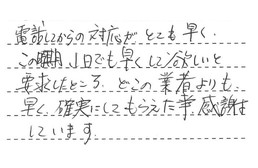 電話してからの対応が とても早く.
この時期 1日でも早くして欲しいと
要求したところ. どこの業者よりも
早く. 確実にしてもらえた事 感謝
しています